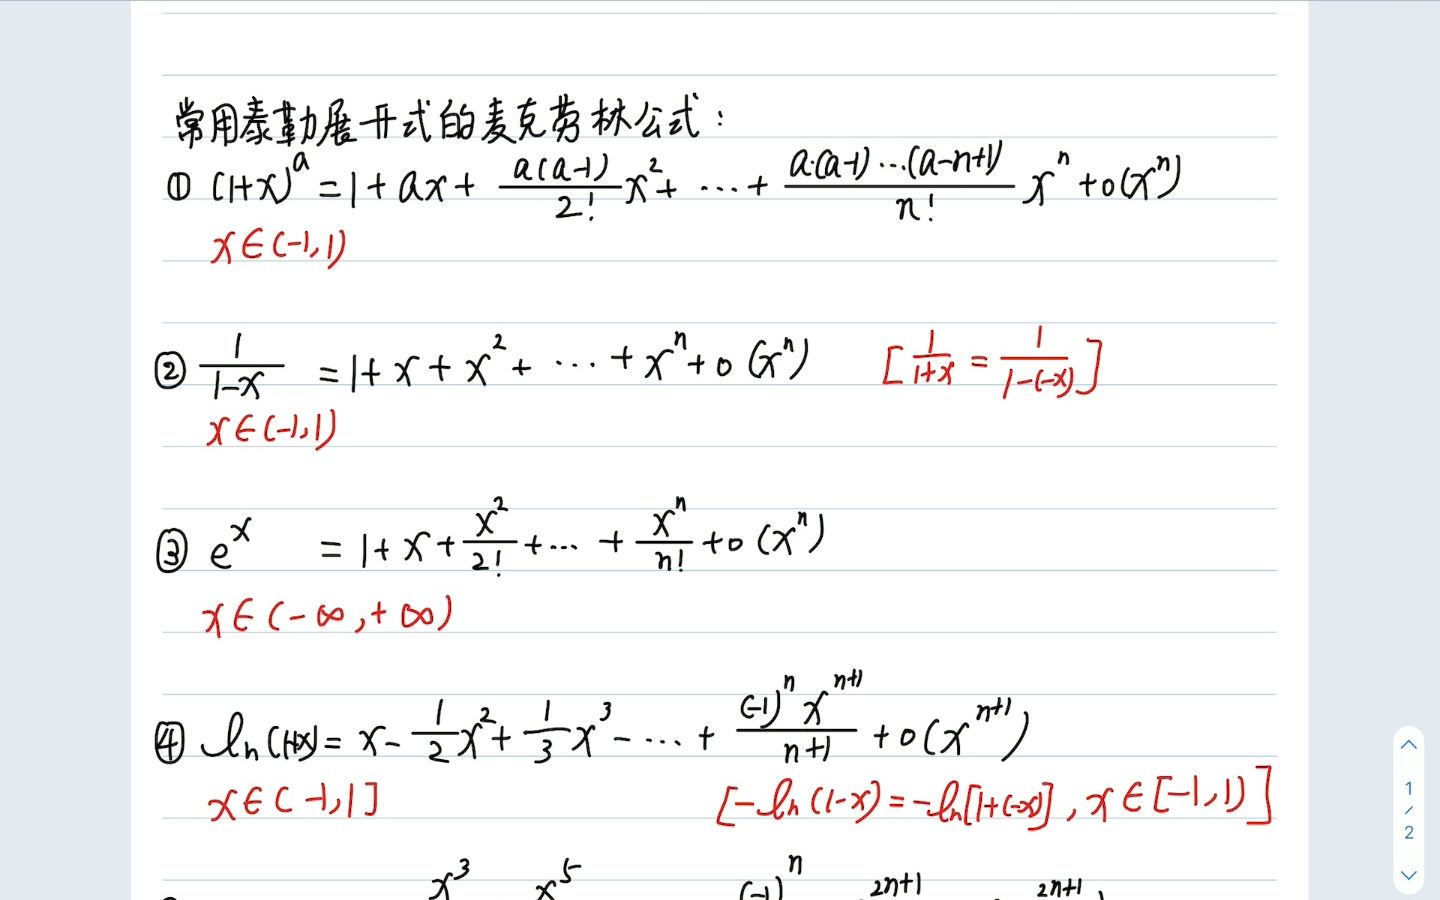 常用泰勒展开式的麦克劳林公式:
① (1+x)^a = 1 + ax + \frac{a(a-1)}{2!}x^2 + ··· + \frac{a·(a-1)···(a-n+1)}{n!}x^n + o(x^n)
x∈(-1,1)
② \frac{1}{1-x} = 1 + x + x^2 + ··· + x^n + o(x^n) [\frac{1}{1+x} = \frac{1}{1-(-x)}]
x∈(-1,1)
③ e^x = 1 + x + \frac{x^2}{2!} + ··· + \frac{x^n}{n!} + o(x^n)
x∈(-∞,+∞)
④ ln(1+x) = x - \frac{1}{2}x^2 + \frac{1}{3}x^3 - ··· + \frac{(-1)^n x^{n+1}}{n+1} + o(x^{n+1})
x∈(-1,1] [-ln(1-x) = -ln[1+(-x)], x∈[-1,1)]
x^3 x^5 (-1)^n 2n+1 2n+1
1
/
2